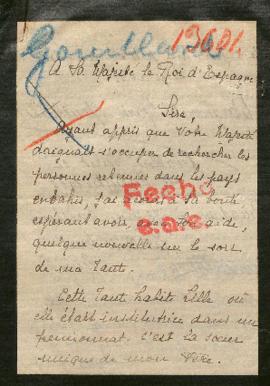 13601.
A Sa Majesté le Roi d'Espagne
Sire,
Ayant appris que Votre Majesté
daignait s'occuper de rechercher les
personnes retenues dans les pays
envahis, j'ai à sa bonté
espérant avoir, aide,
quelque nouvelle sur le sort
de ma Tante.
Fecho
Cette Tante habite Lille où
elle était institutrice dans un
pensionnat. C'est la soeur
unique de mon Père.